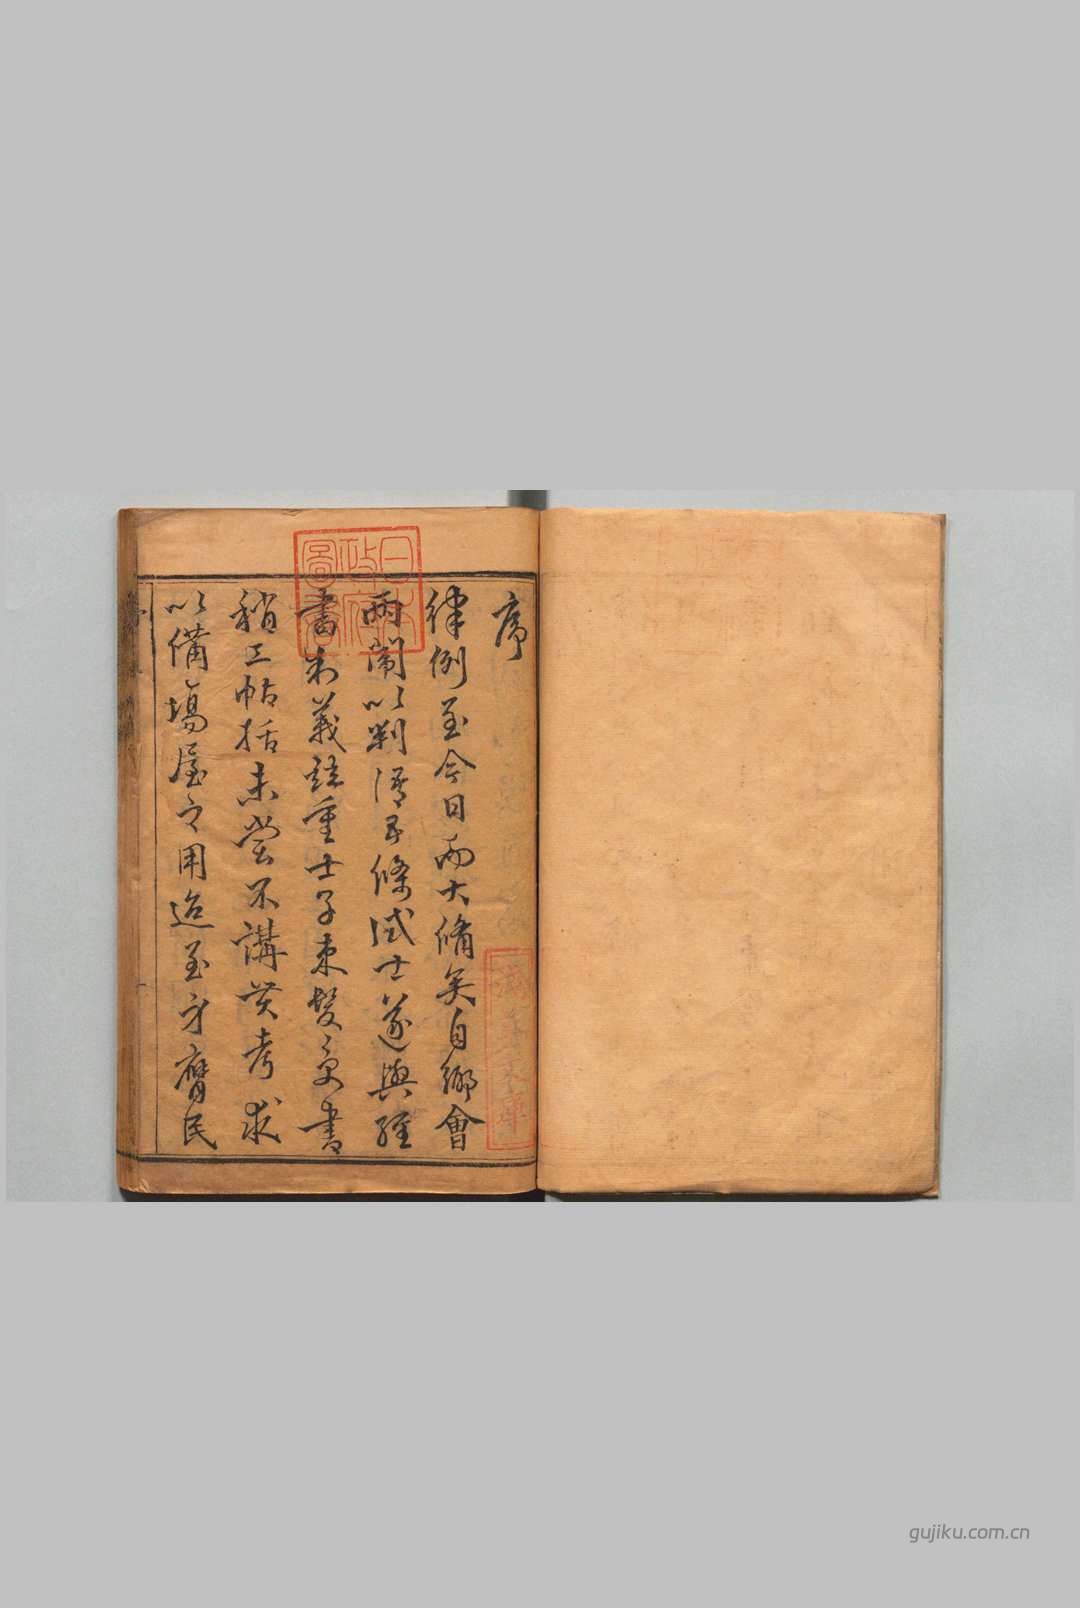 序
律例至今日而大備矣自鄉會
兩闈以判語五條試士遂與經
書制義並重士子束髮受書
稍工帖括未嘗不講貫考求
以備場屋之用迨至身膺民
日本
政府
圖書
文庫
gujiku.com.cn